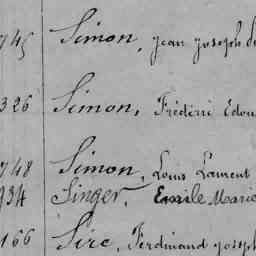 745 Simon, Jean Joseph
326 Simon, Frédéric Edou
748 Simon, Louis Laurent
934 Singer, Emile Marie
166 Sire, Ferdinand Joseph